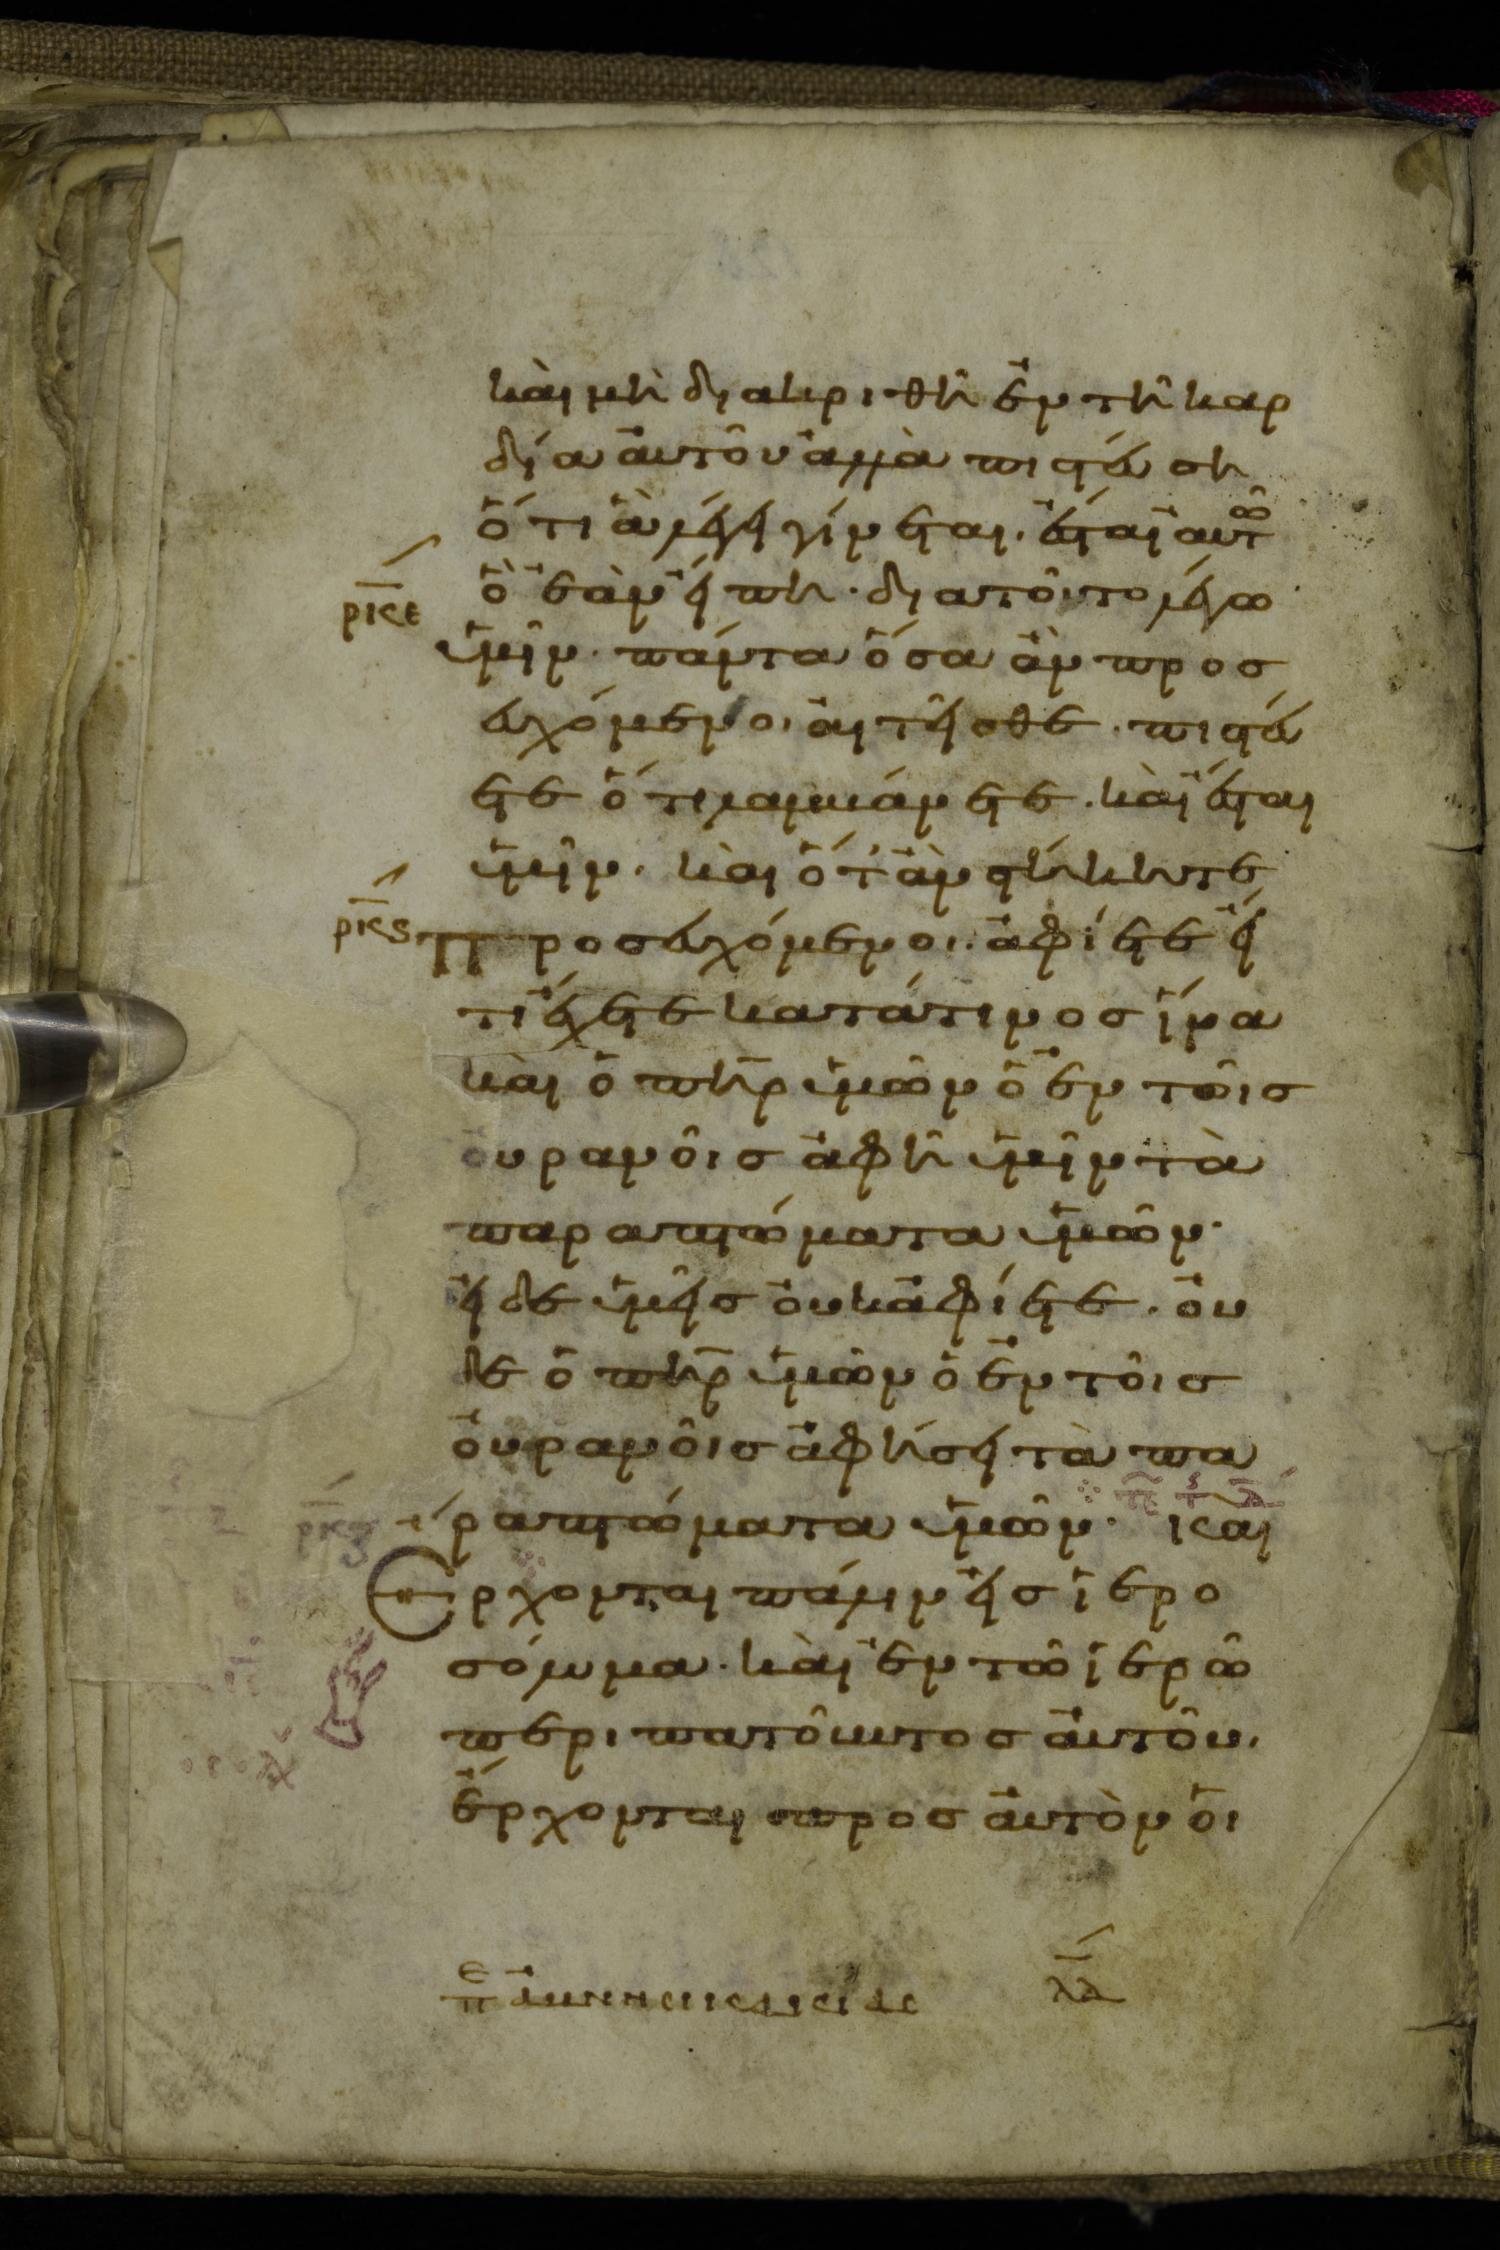 καὶ μὴ διακριθῆ ἐν τῆ καρ
δία αὐτοῦ ἀλλὰ πιστεύση
ὅτι ἃ λέγει γίνεται. ἔσται αὐτῶ
ρκε ὃ ἐὰν εἴπη· διατοῦτο λέγω
ὑμῖν· πάντα ὅσα ἂν προσ
ευχόμενοι αἰτεῖσθε. πιστεύ
ετε ὅτι λαμβάνετε. καὶ ἔσται
ὑμῖν. καὶ ὅτ' ἂν στήκητε
ρκϛ προσευχόμενοι. ἀφίετε εἴ
τι ἔχετε κατάτινοσ ἵνα
καὶ ὁ πηρ ὑμῶν ὁ ἐν τοῖσ
οὐρανοῖσ ἀφῆ ὑμῖν τὰ
παραπτώματα ὑμῶν·
εἰ δε ὑμεῖσ οὐκ ἀφίετε. οὐ
δε ὁ πηρ ὑμῶν ὁ ἐν τοῖσ
οὐρανοῖσ ἀφήσει τὰ πα
ρκζ ραπτώματα ὑμῶν· καὶ
Ερχονται πάλιν εἰσ ἱερο
σόλυμα. καὶ ἐν τῶ ἱερῶ
περιπατοῦντοσ αὐτοῦ.
ἔρχονται προσ αὐτὸν οἱ
λδ